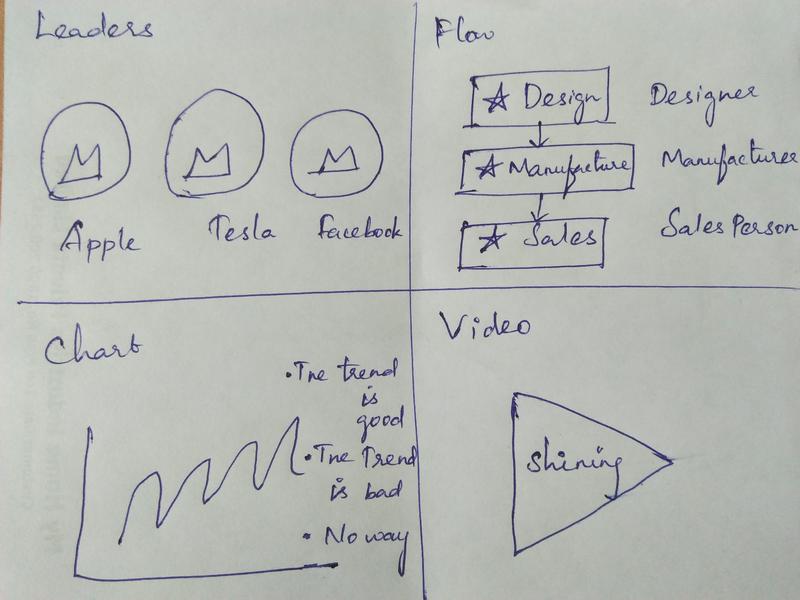 Leaders
Apple
Tesla
Facebook
Flow
Design
Designer
Manufacture
Manufacturer
Sales
Sales Person
Chart
• The trend
is
good
• The Trend
is bad
• No way
Video
Shining